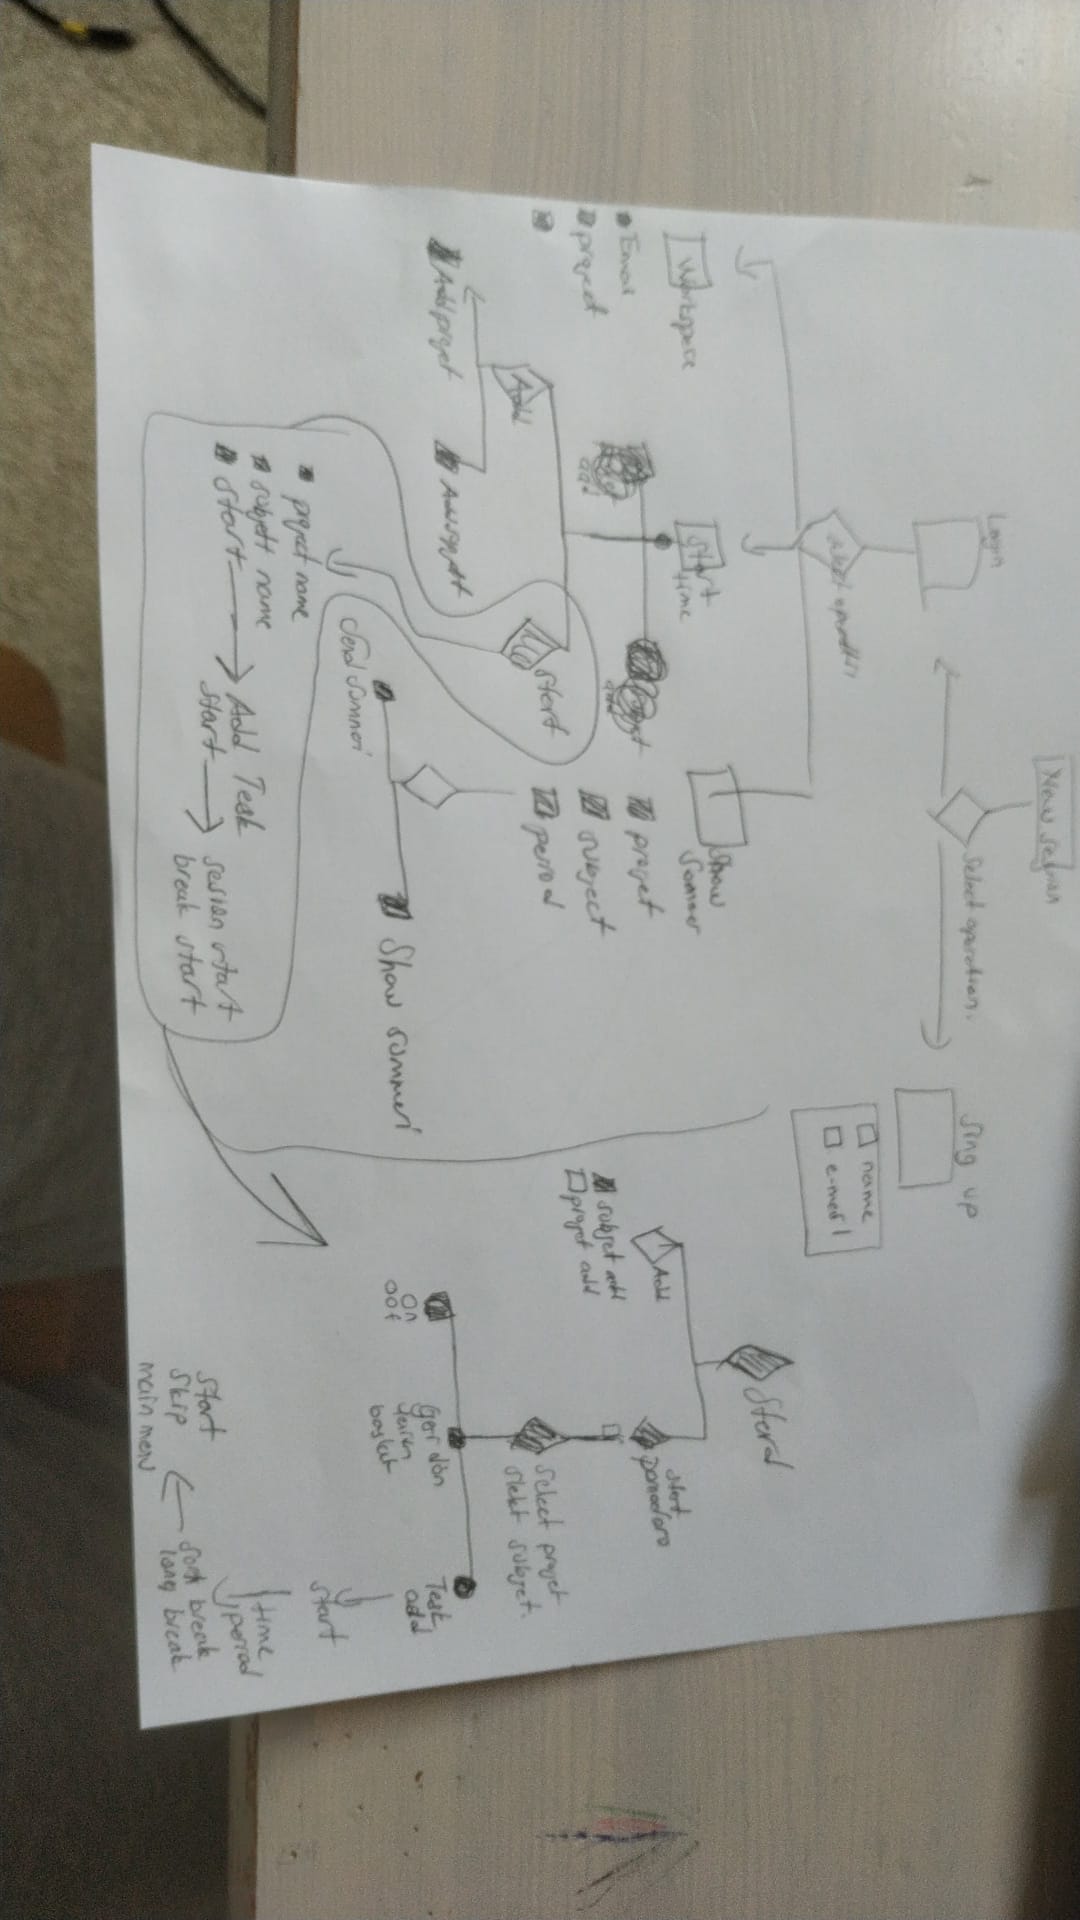 New sesian
Select operation.
Login
Sing up
name
e-meil
Select operation
Workspace
Start
time
Show
Sommer
Email
project
projet
subject
period
add
add
Add
Start
Add projet
Send summeri
Show summeri
project name
subjett name
start
Add Task
Start
sesian start
break start
Sterd
Add
subjet add
projet add
start
pomodoro
Select projet
Slekt subjet.
On
oof
Task
add
start
time
perrod
sort break
long break
Start
Skip
main menu